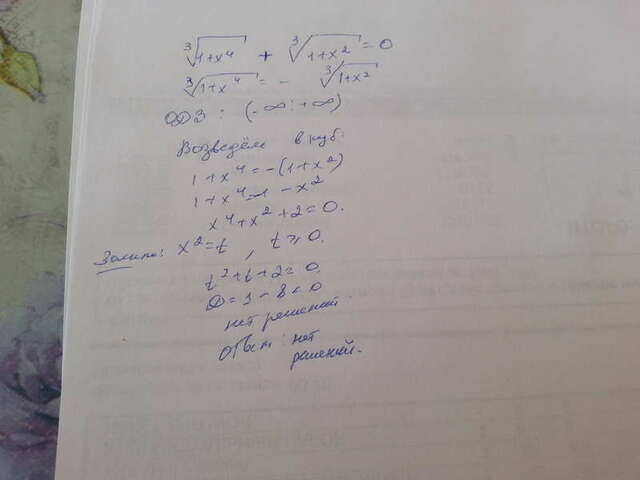 ∛(1+x⁴) + ∛(1+x²) = 0
∛(1+x⁴) = - ∛(1+x²)
ОДЗ : (-∞ ; +∞)
Возведём в куб:
1+x⁴ = -(1+x²)
1+x⁴ = -1 - x²
x⁴+x²+2=0.
Замена: x²=t, t≥0.
t²+t+2=0.
D=1-8<0
нет решений.
Ответ: нет
решений.